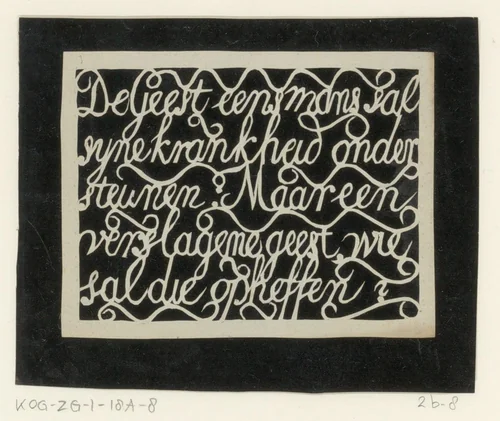 De Geest eens mans sal
syne krankheid onder
steunen : Maar een
verslagene geest, wie
sal die opheffen ?
KOG-ZG-1-18A-8
2b-8